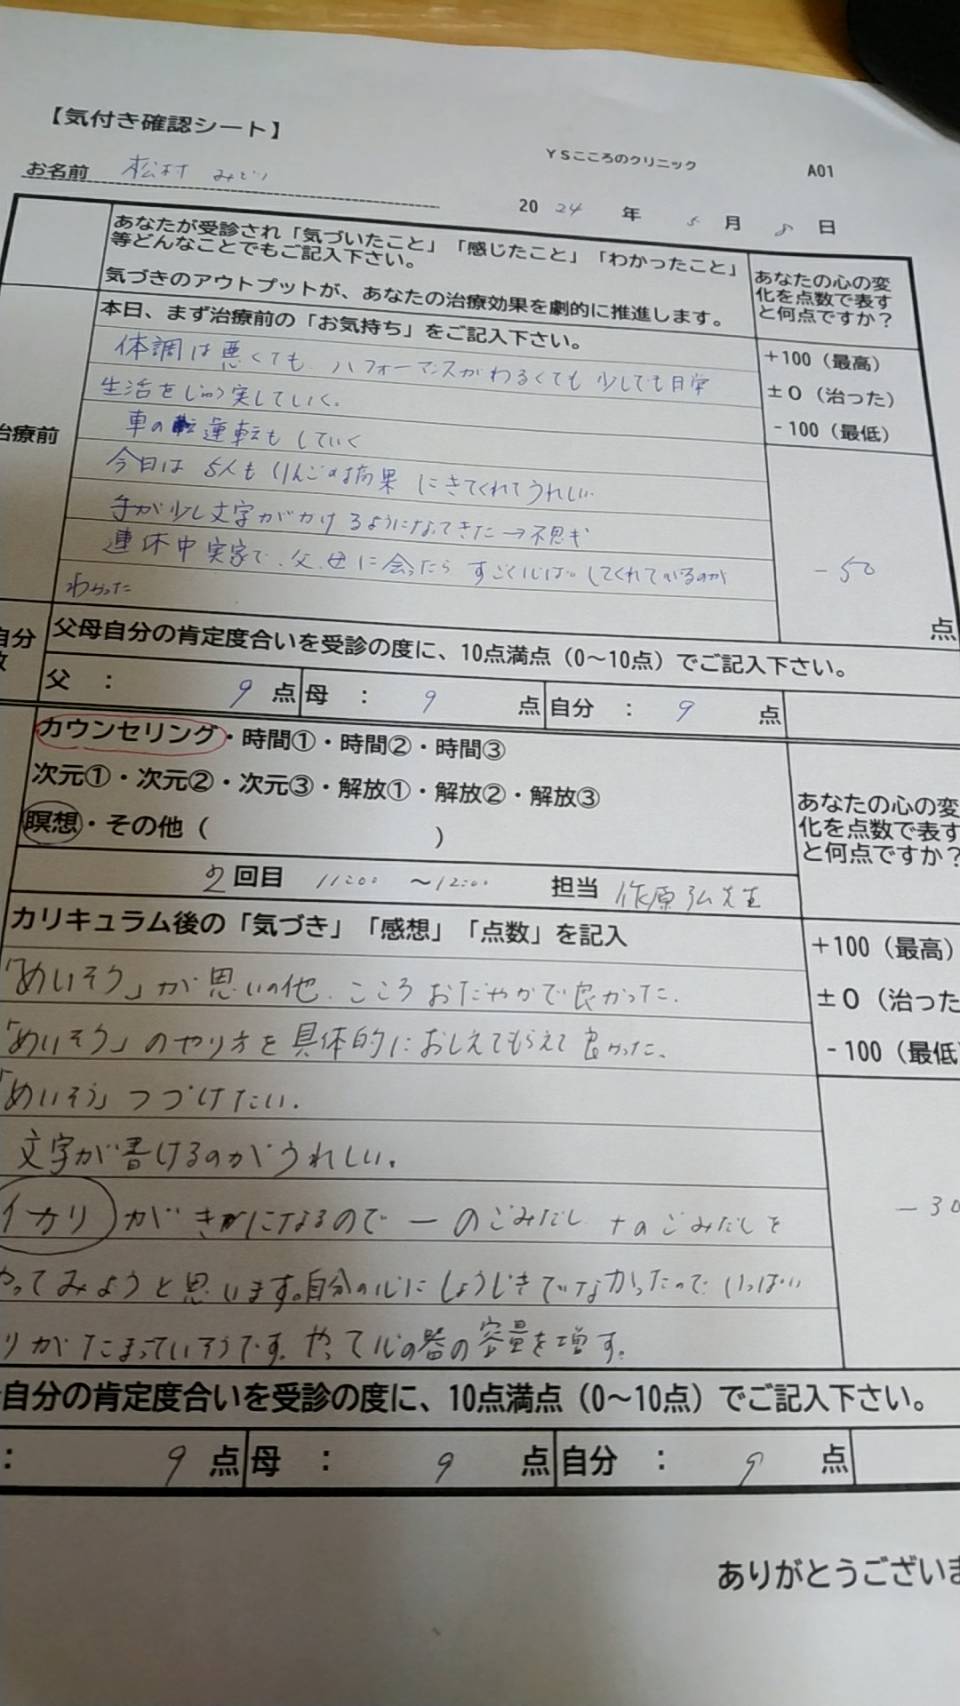 【気付き確認シート】
YSこころのクリニック
A01
お名前 松村 みどり
2024年 5月 8日
あなたが受診され「気づいたこと」「感じたこと」「わかったこと」
等どんなことでもご記入下さい。
気づきのアウトプットが、あなたの治療効果を劇的に推進します。
あなたの心の変
化を点数で表す
と何点ですか？
治療前
本日、まず治療前の「お気持ち」をご記入下さい。
体調は悪くても、パフォーマンスがわるくても少しでも日常
生活をじゅう実していく。
車の運転もしていく
今日は5人もりんごの
にきてくれてうれしい。
手が少し文字がかけるようになってきた→不思ギ
連休中実家で、父、母に会ったらすごく心ぱいしてくれているのが
わかった
+100（最高）
±0（治った）
-100（最低）
-50
点
自分
数
父母自分の肯定度合いを受診の度に、10点満点（0～10点）でご記入下さい。
父 ： 9 点 母 ： 9 点 自分 ： 9 点
カウンセリング・時間①・時間②・時間③
次元①・次元②・次元③・解放①・解放②・解放③
瞑想・その他（　　　）
あなたの心の変
化を点数で表す
と何点ですか？
2回目 11:00 ～12:00 担当 作原弘先生
カリキュラム後の「気づき」「感想」「点数」を記入
「めいそう」が思いの他、こころおだやかで良かった。
「めいそう」のやり方を具体的におしえてもらえて良かった。
「めいそう」つづけたい。
文字が書けるのがうれしい。
イカリがきがになるので一のごみだし +のごみだしを
やってみようと思います。自分の心にしょうじきでいなかったのでいっぱい
りがたまっていそうです。やって心の器の容量を増す。
+100（最高）
±0（治った
-100（最低）
-30
自分の肯定度合いを受診の度に、10点満点（0～10点）でご記入下さい。
： 9 点 母 ： 9 点 自分 ： 9 点
ありがとうございま